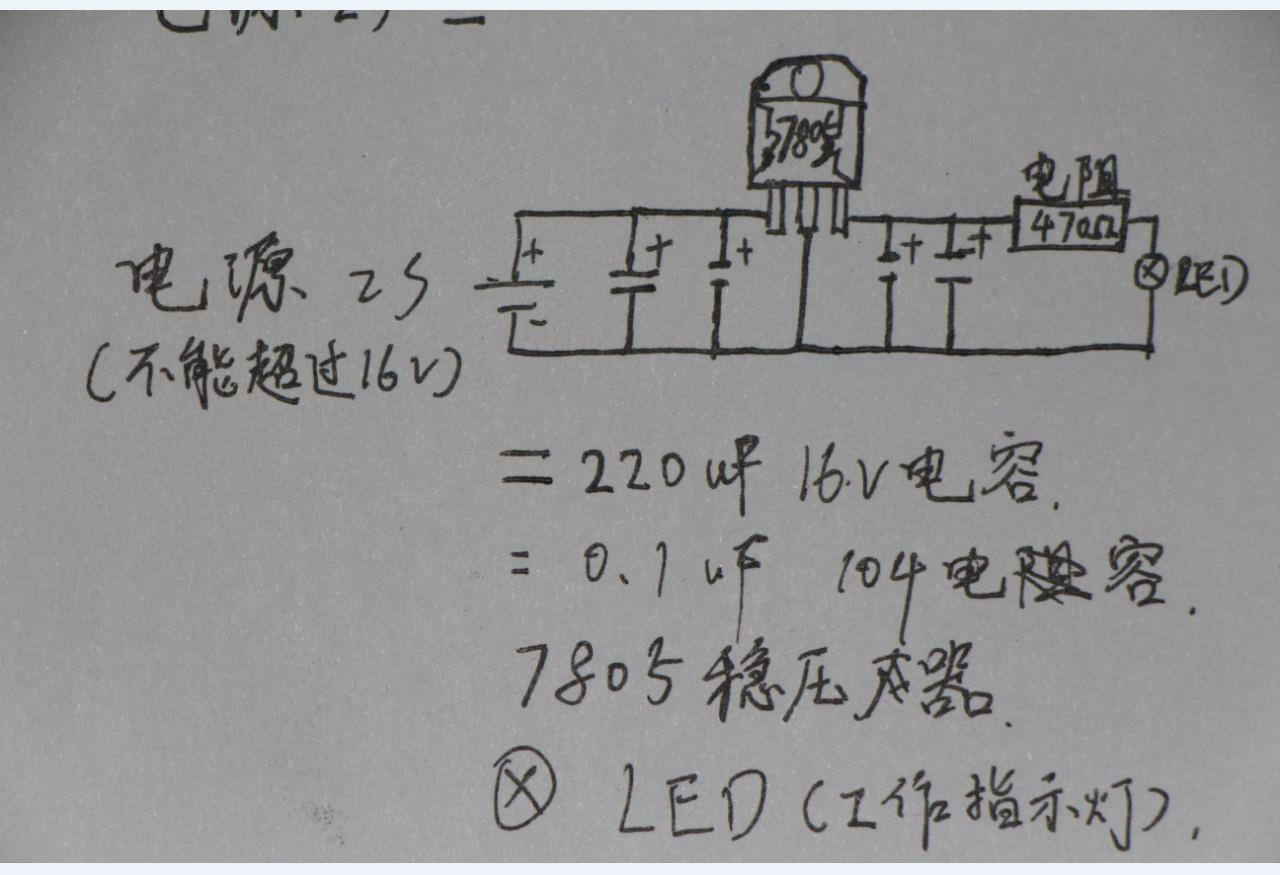 7805
电阻
470Ω
LED
+
+
+
+
+
-
电源 2S
(不能超过16V)
= 220uF 16V电容.
= 0.1uF 104电容.
7805稳压器.
⊗ LED (工作指示灯).